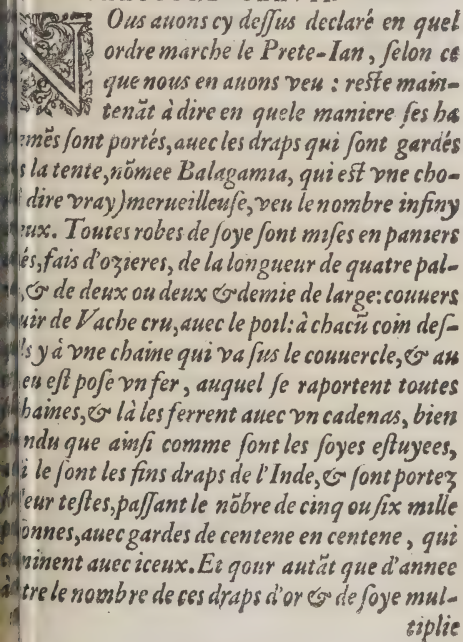 Ous auons cy dessus declaré en quel
ordre marche le Prete-Ian, selon ce
que nous en auons veu : reste main-
tenāt à dire en quele maniere ses ha
mēs sont portés, auec les draps qui sont gardés
la tente, nōmee Balagamia, qui est vne cho-
dire vray) merueilleuse, veu le nombre infiny
eux. Toutes robes de soye sont mises en paniers
és, fais d'ozieres, de la longueur de quatre pal-
, & de deux ou deux & demie de large: couuers
uir de Vache cru, auec le poil: à chacū coin des-
s y à vne chaine qui va sus le couuercle, & au
eu est pose vn fer, auquel se raportent toutes
haines, & là les ferrent auec vn cadenas, bien
ndu que ainsi comme sont les soyes estuyees,
i le sont les fins draps de l'Inde, & sont portez
eur testes, passant le nōbre de cinq ou six mille
onnes, auec gardes de centene en centene, qui
minent auec iceux. Et qour autāt que d'annee
tre le nombre de ces draps d'or & de soye mul-
tiplie